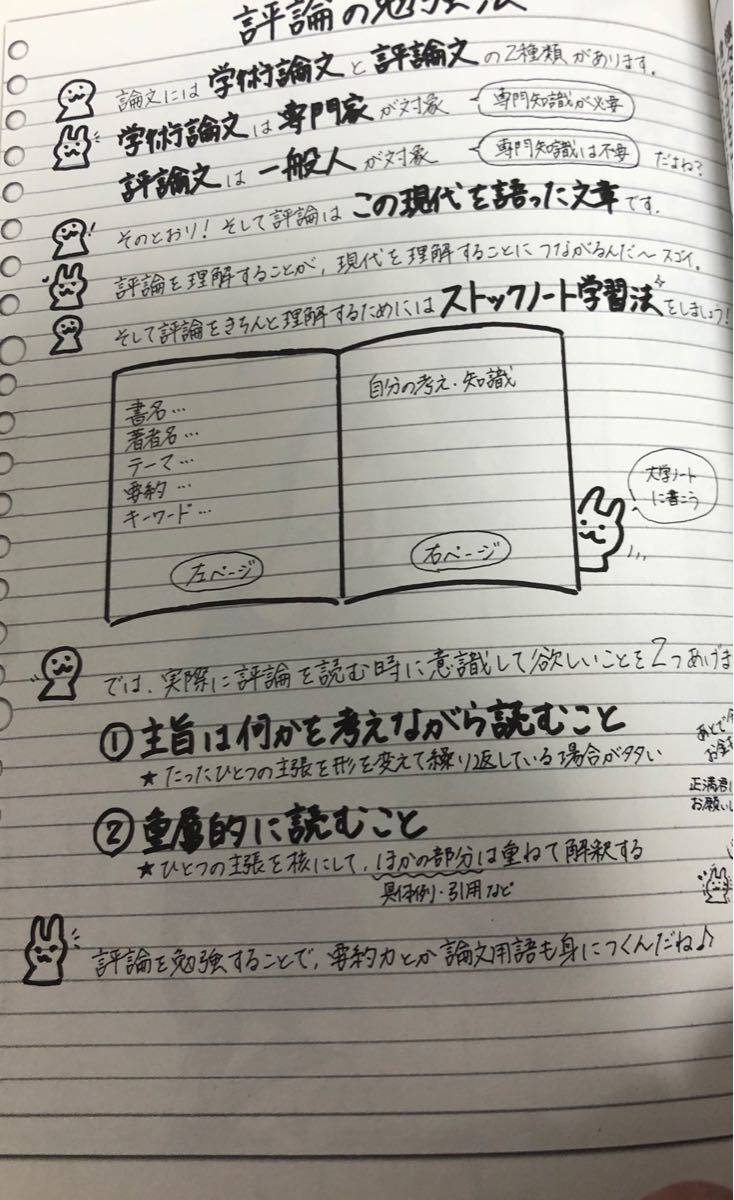 評論の勉強法
論文には学術論文と評論文の2種類があります.
学術論文は専門家が対象 専門知識が必要
評論文は一般人が対象 専門知識は不要 だよね?
そのとおり!そして評論はこの現代を語った文章です.
評論を理解することが,現代を理解することにつながるんだ〜スゴイ.
そして評論をきちんと理解するためにはストックノート学習法をしましょう!
書名…
著者名…
テーマ…
要約…
キーワード…
左ページ
自分の考え・知識
右ページ
大学ノート
に書こう
では,実際に評論を読む時に意識して欲しいことを2つあげま
①主旨は何かを考えながら読むこと
★たったひとつの主張を形を変えて繰り返している場合が多い
②重層的に読むこと
★ひとつの主張を核にして,ほかの部分は重ねて解釈する
具体例・引用など
あとで
お金
正満君に
お願いし
評論を勉強することで,要約力とか論文用語も身につくんだね♪